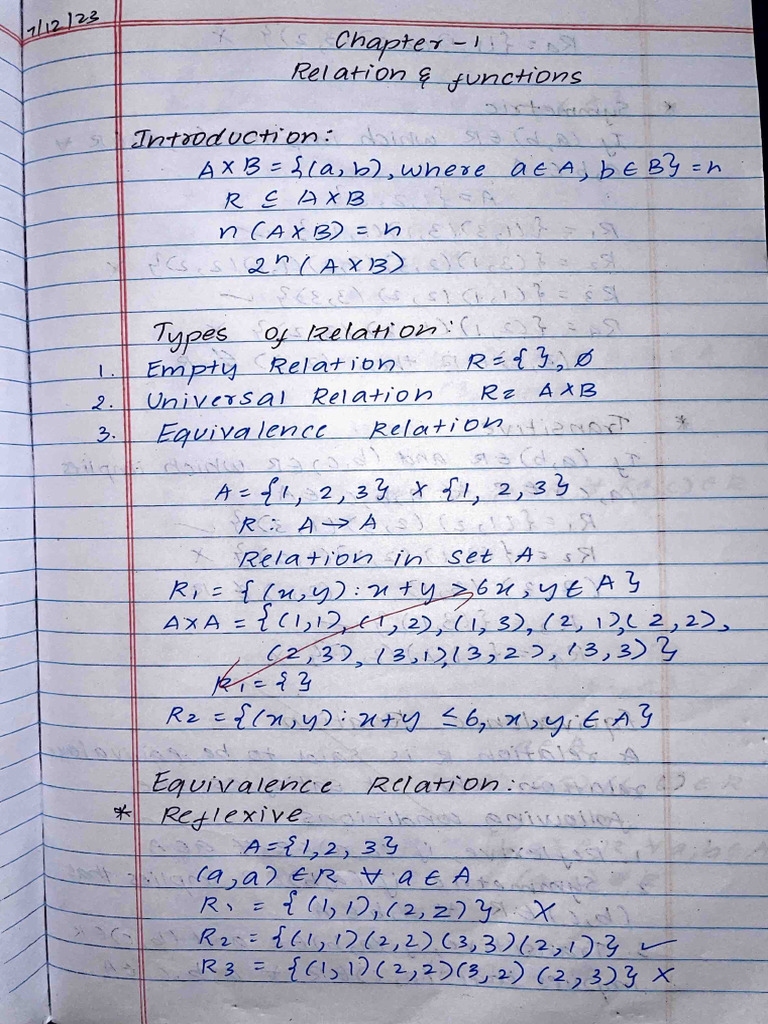 7/12/23
Chapter-1
Relation & functions
Introduction:
A×B = {(a,b), where a∈A, b∈B} = n
R ⊆ A×B
n(A×B) = n
2ⁿ(A×B)
Types of Relation:
1. Empty Relation R={ }, Ø
2. Universal Relation R= A×B
3. Equivalence Relation
A={1, 2, 3} × {1, 2, 3}
R: A→A
Relation in set A
R₁ = {(x,y): x+y >6x, y∈A}
A×A = {(1,1), (1,2), (1,3), (2,1),(2,2),
(2,3), (3,1),(3,2), (3,3)}
R₁={ }
R₂ ={(x,y): x+y ≤6, x,y ∈A}
Equivalence Relation:
* Reflexive
A={1,2,3}
(a,a) ∈R ∀ a∈A
R₁ = {(1,1),(2,2)} X
R₂ = {(1,1)(2,2)(3,3)(2,1)} ✓
R₃ = {(1,1)(2,2)(3,2)(2,3)} X